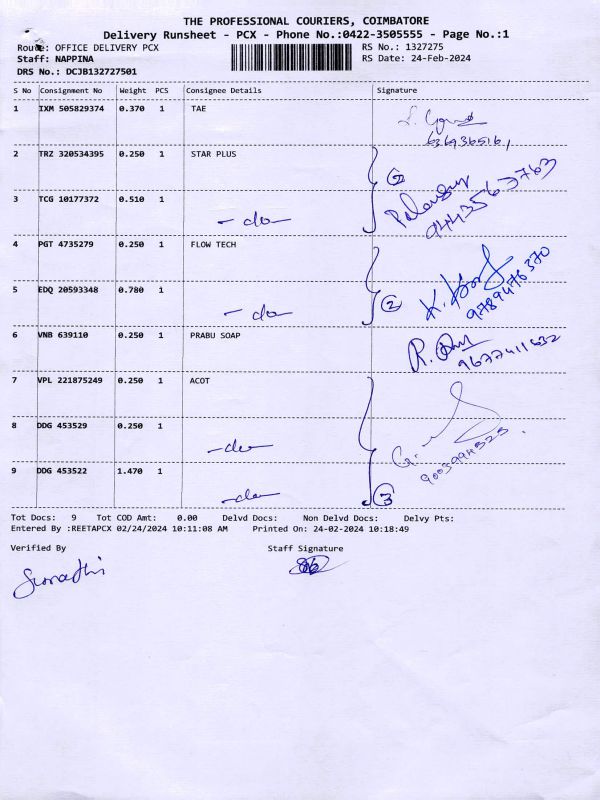 THE PROFESSIONAL COURIERS, COIMBATORE
Delivery Runsheet - PCX - Phone No.:0422-3505555 - Page No.:1
Route: OFFICE DELIVERY PCX
RS No.: 1327275
Staff: NAPPINA
RS Date: 24-Feb-2024
DRS No.: DCJB132727501
S No Consignment No Weight PCS Consignee Details Signature
1 IXM 505829374 0.370 1 TAE
6369365161
2 TRZ 320534395 0.250 1 STAR PLUS
②
3 TCG 10177372 0.510 1 -do-
9443563763
4 PGT 4735279 0.250 1 FLOW TECH
5 EDQ 20593348 0.780 1 -do-
② 9789476370
6 VNB 639110 0.250 1 PRABU SOAP
9677411632
7 VPL 221875249 0.250 1 ACOT
8 DDG 453529 0.250 1 -do-
G. 9003994525
9 DDG 453522 1.470 1 -do-
③
Tot Docs: 9 Tot COD Amt: 0.00 Delvd Docs: Non Delvd Docs: Delvy Pts:
Entered By :REETAPCX 02/24/2024 10:11:08 AM Printed On: 24-02-2024 10:18:49
Verified By Staff Signature